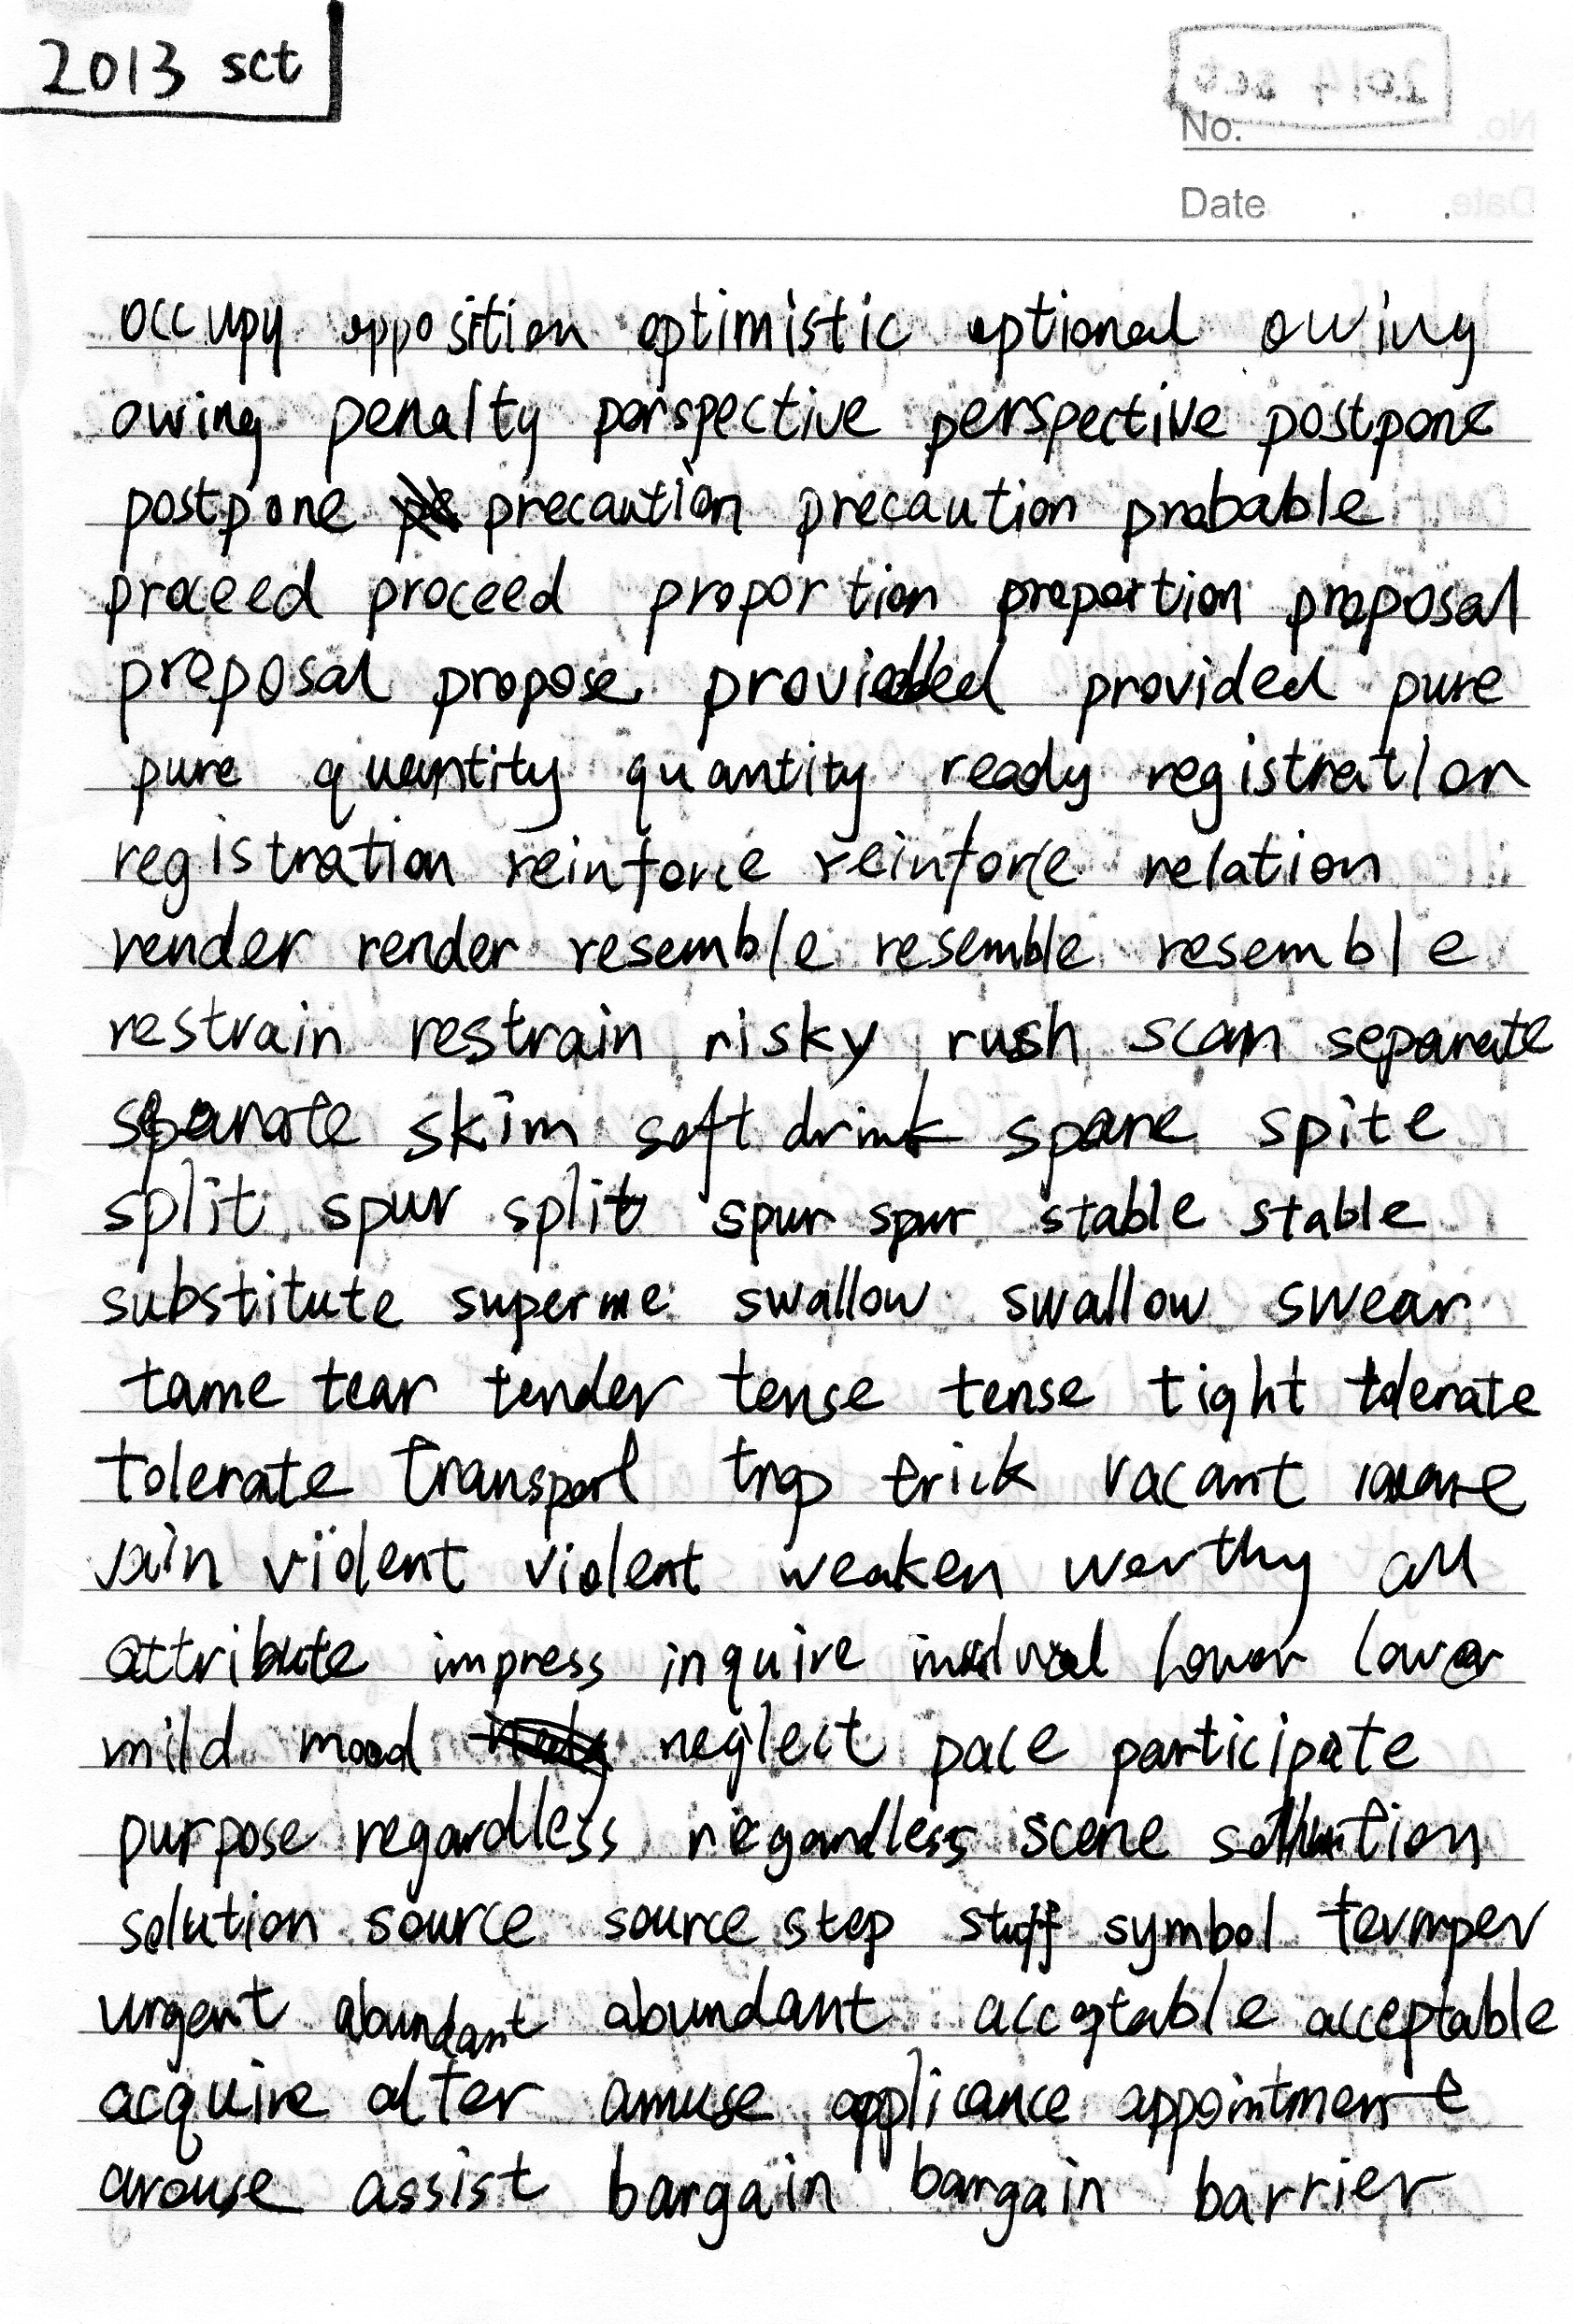 2013 sct
No.
Date . .
occupy opposition optimistic optional owing
owing penalty perspective perspective postpone
postpone precaution precaution probable
proceed proceed proportion proportion proposal
proposal propose provided provided pure
pure quantity quantity ready registration
registration reinforce reinforce relation
render render resemble resemble resemble
restrain restrain risky rush scan separate
separate skim soft drink spare spite
split spur split spur spur stable stable
substitute superme swallow swallow swear
tame tear tender tense tense tight tolerate
tolerate transport trap trick vacant
vain violent violent weaken worthy all
attribute impress inquire lower lower
mild mood neglect pace participate
purpose regardless regardless scene solution
solution source source step stuff symbol temper
urgent abundant abundant acceptable acceptable
acquire alter amuse applicance appointment
arouse assist bargain bargain barrier